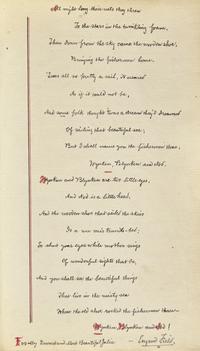 All night long their nets they threw
To the stars in the twinkling foam,
Then down from the sky came the wooden shoe,
Bringing the fishermen home.
'Twas all so pretty a sail, it seemed
As if it could not be,
And some folk thought 'twas a dream they'd dreamed
Of sailing that beautiful sea;
But I shall name you the fishermen three,
Wynken, Blynken and Nod.
Wynken and Blynken are two little eyes,
And Nod is a little head,
And the wooden shoe that sailed the skies
Is a wee one's trundle-bed;
So shut your eyes while mother sings
Of wonderful sights that be,
And you shall see the beautiful things
As you rock in the misty sea
Where the old shoe rocked the fishermen three—
Wynken, Blynken and Nod!
Eugene Field.